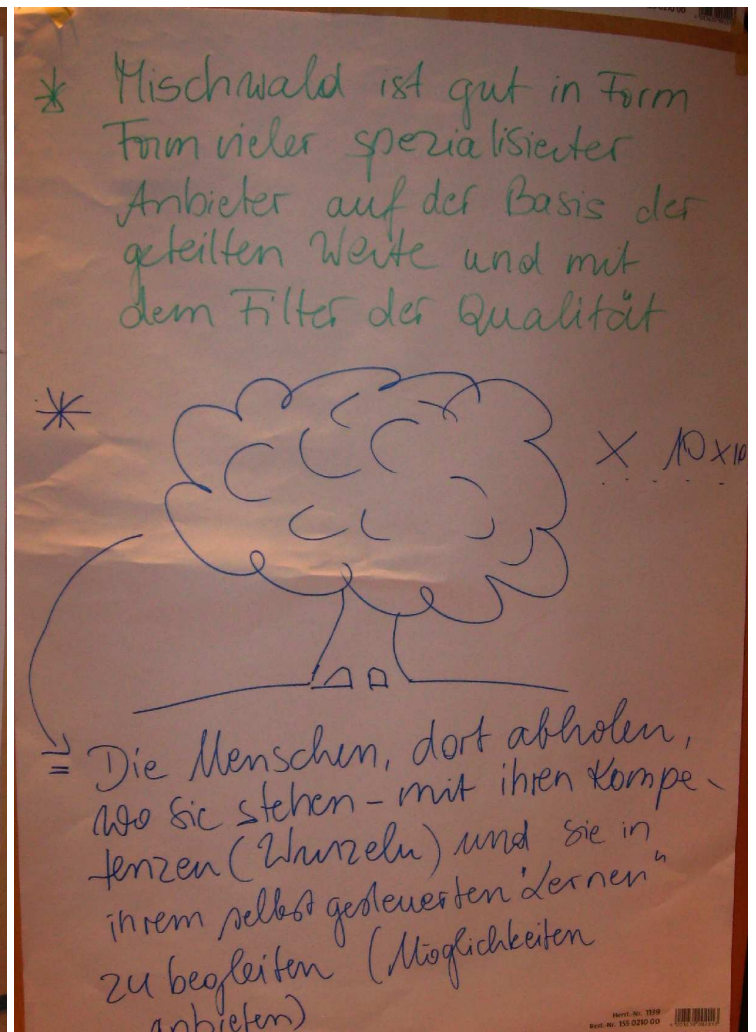 * Mischwald ist gut in Form
Form vieler spezialisierter
Anbieter auf der Basis der
geteilten Werte und mit
dem Filter der Qualität
*
X 10 x 10
= Die Menschen, dort abholen,
wo sie stehen - mit ihren Kompe-
tenzen (Wurzeln) und sie in
ihrem selbst gesteuerten "Lernen"
zu begleiten (Möglichkeiten
anbieten)
Herst.-Nr. 1139
Best.-Nr. 155 0210 00